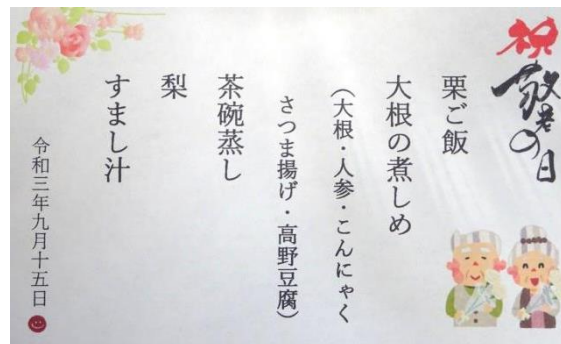 祝
敬老の日
栗ご飯
大根の煮しめ
（大根・人参・こんにゃく
さつま揚げ・高野豆腐）
茶碗蒸し
梨
すまし汁
令和三年九月十五日